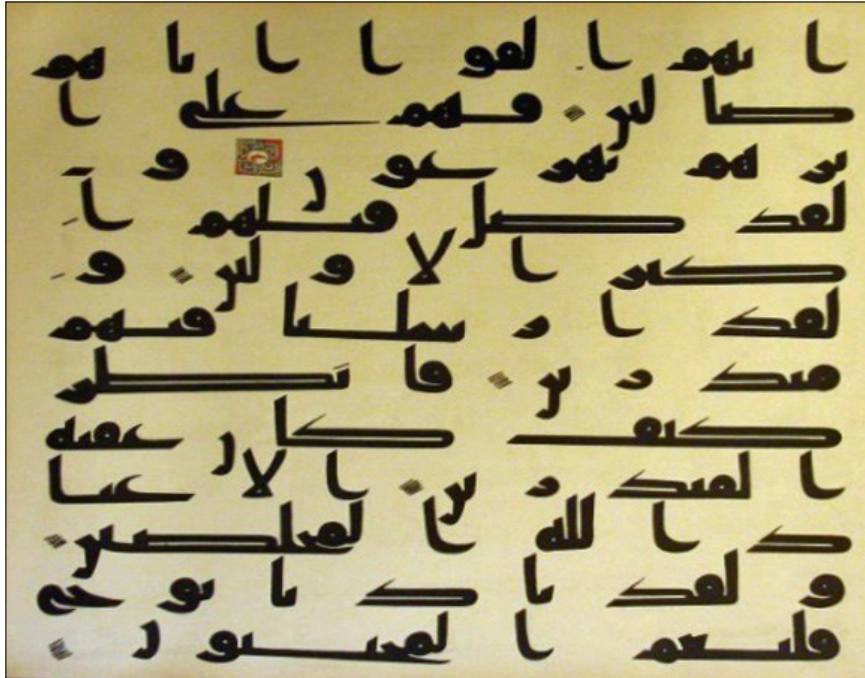 انهم الفوا اباهم
ضالين فهم على ا
ثرهم يهرعون و
لقد ضل قبلهم ا
كثر الاولين و
لقد ارسلنا فيهم
منذرين فانظر
كيف كان عقبة
المنذرين الا عبا
د الله المخلصين
ولقد نادينا نوح
فلنعم المجيبون